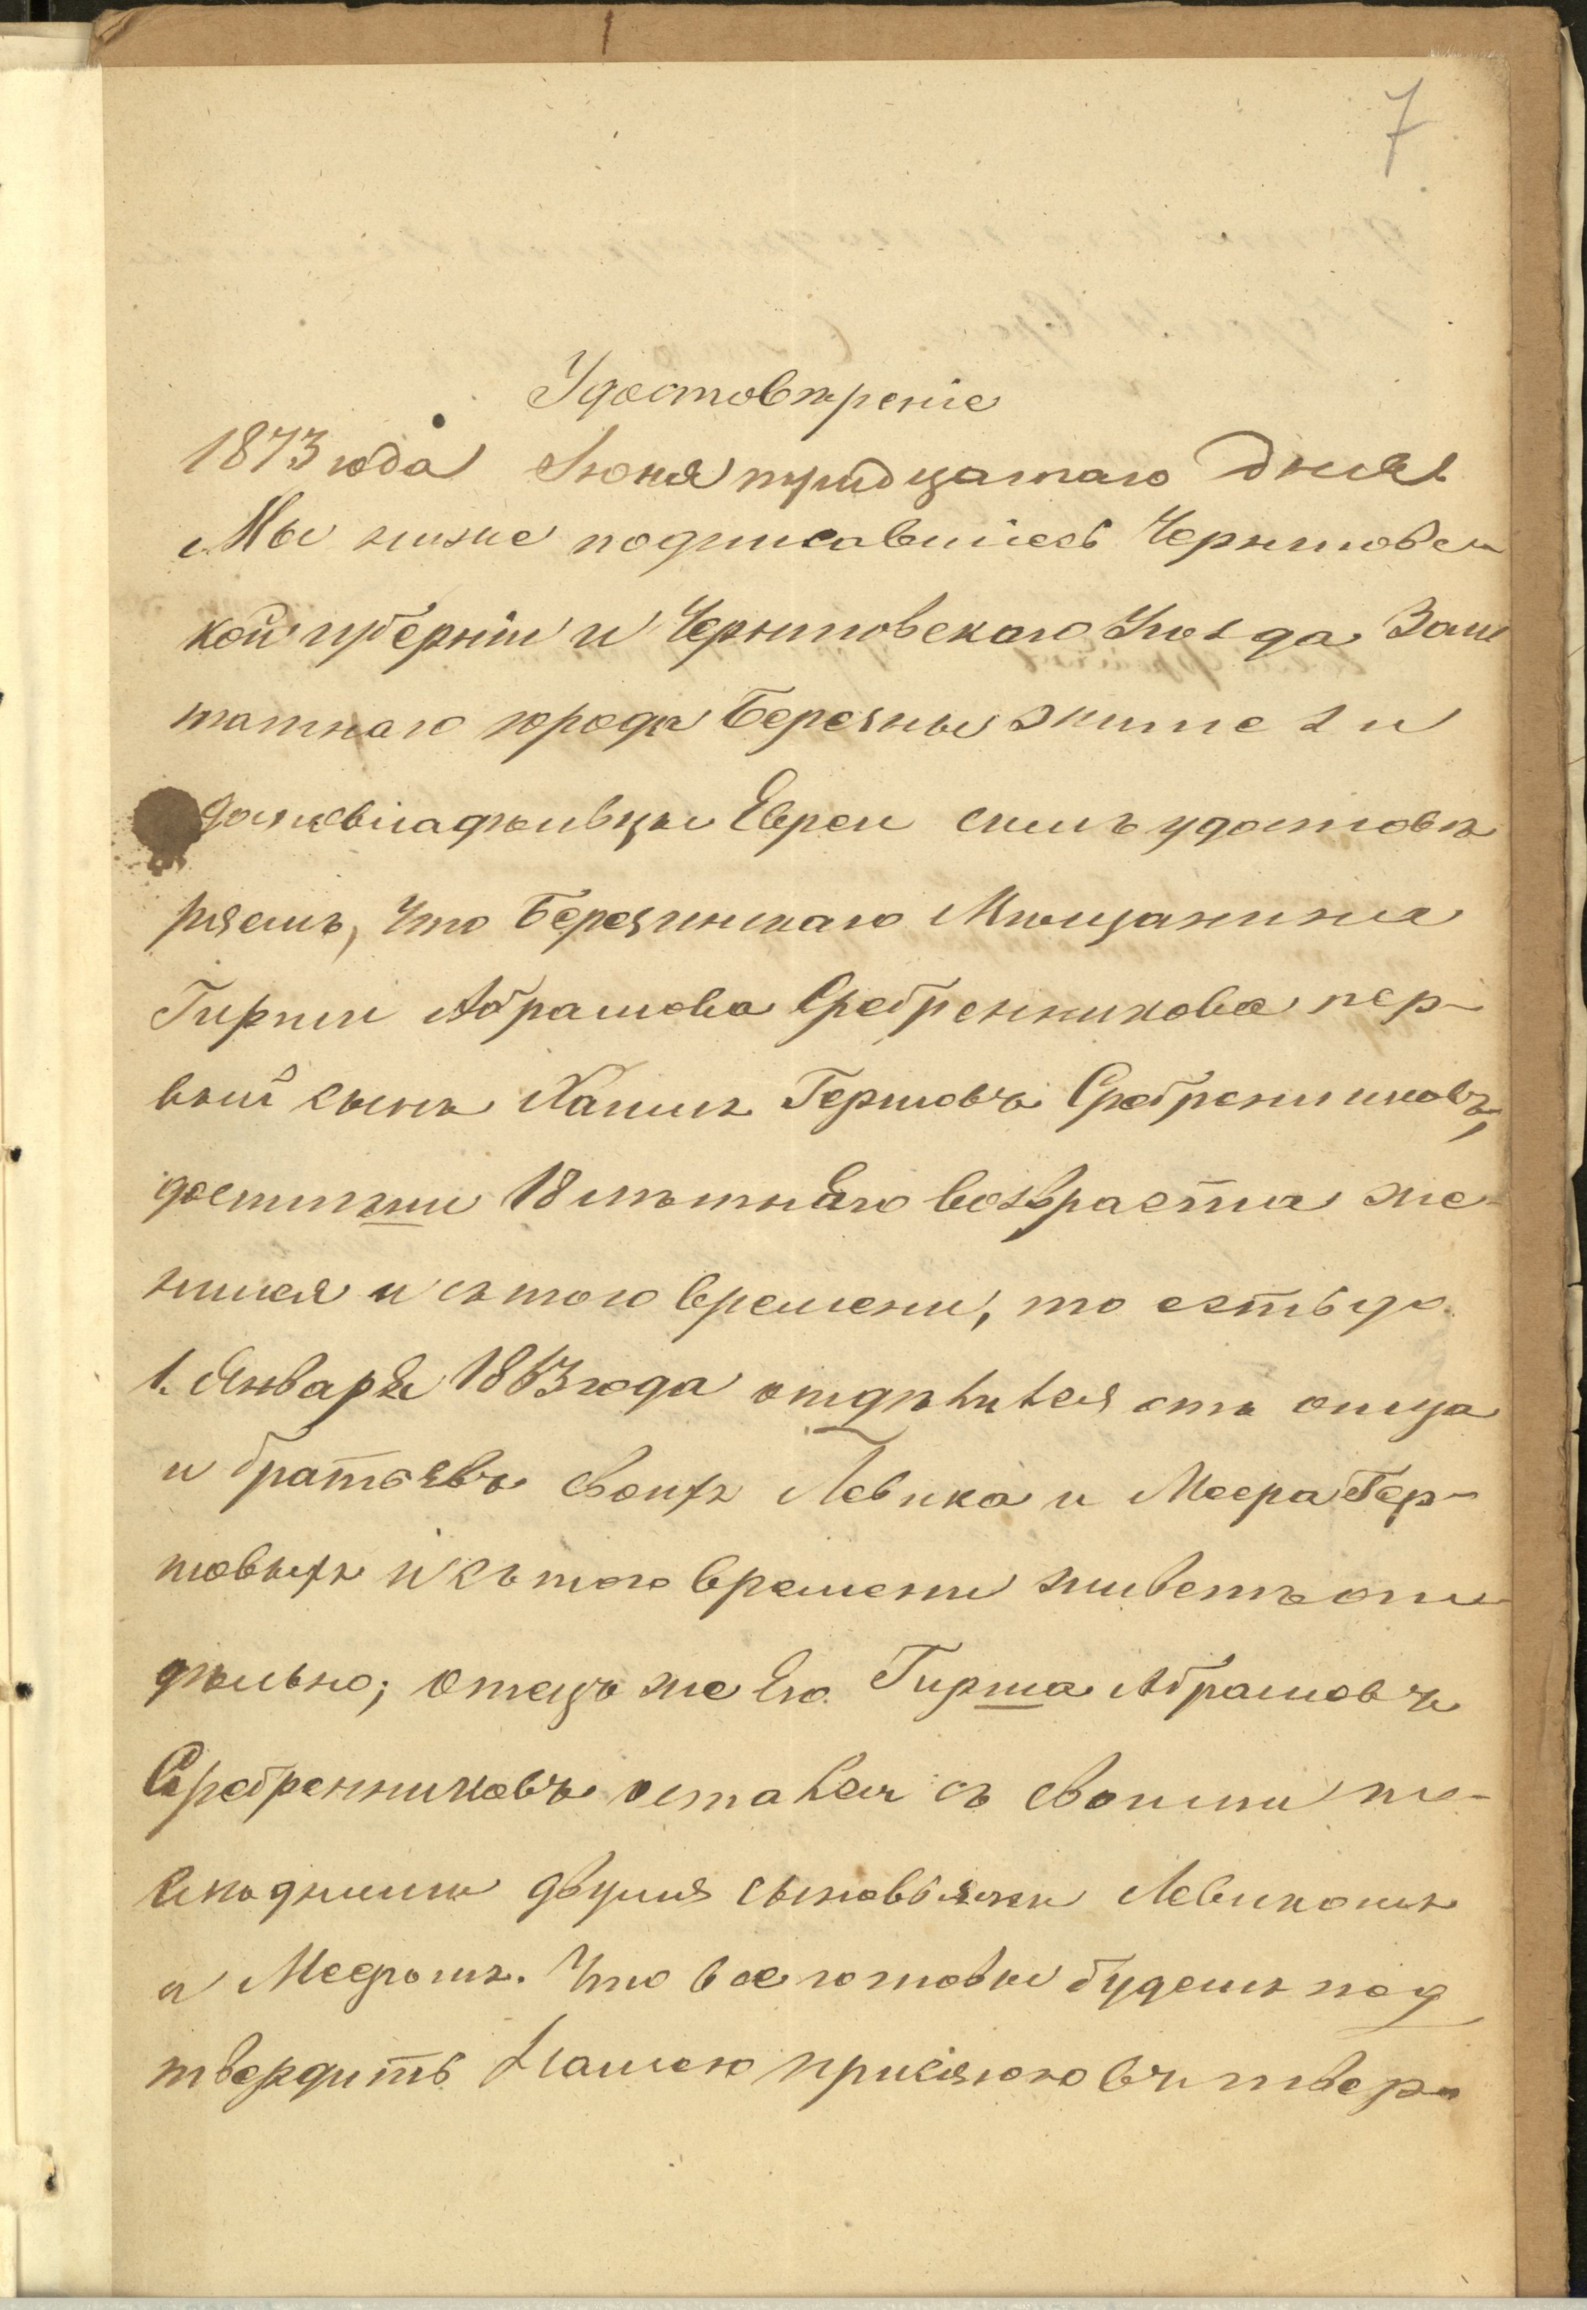 7
Удостовѣреніе
1873 года Іюня тридцатаго дня
Мы ниже подписавшіесь Чернигов-
кой губерніи и Черниговскаго Уѣзда Заш
татнаго города Березны жители
домовладѣльцы Евреи симъ удостовѣ
ряемъ, что Березинскаго Мѣщанина
Гирши Абрамова Сребренникова пер-
вый сынъ Хаимъ Гершовъ Сребренниковъ,
достигши 18 лѣтняго возраста же-
нился и съ того времени, то есть до
1. Января 1863 года отдѣлился отъ отца
и братьевъ своихъ Левика и Меера Гер-
шовыхъ и съ того времени живетъ от-
дѣльно; Отецъ же Его Гирша Абрамовъ
Сребренниковъ остался съ своими по-
слѣдними двумя сыновьями Левикомъ
и Мееромъ. Что все готовы будемъ под
твердить нашею присягою въ твер-